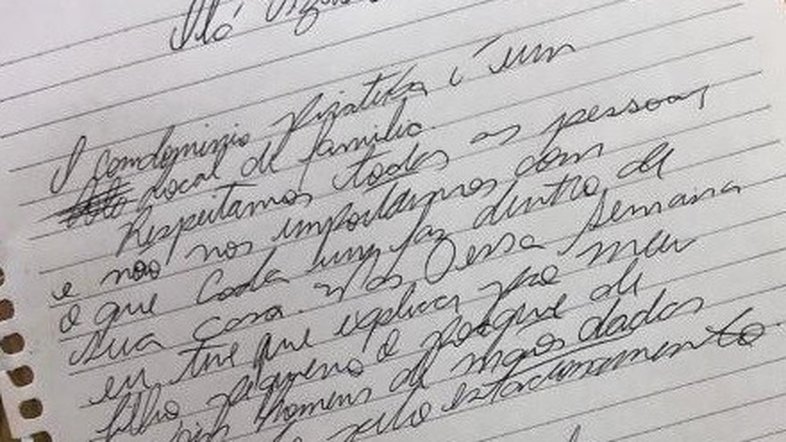 Alô
O condominio Piratiba é um
local de familia.
Respeitamos todas as pessoas
e não nos importamos com
o que cada um faz dentro de
sua casa. Mas essa semana
eu tive que explicar pro meu
filho pequeno o porque de
dois homens de mãos dadas
pelo estacionamento.